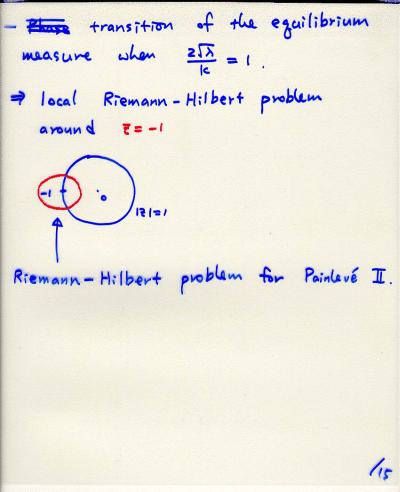 - transition of the equilibrium
measure when 2√λ/k = 1.
⇒ local Riemann-Hilbert problem
around z = -1
-1
0
|z|=1
Riemann-Hilbert problem for Painlevé II.
/15